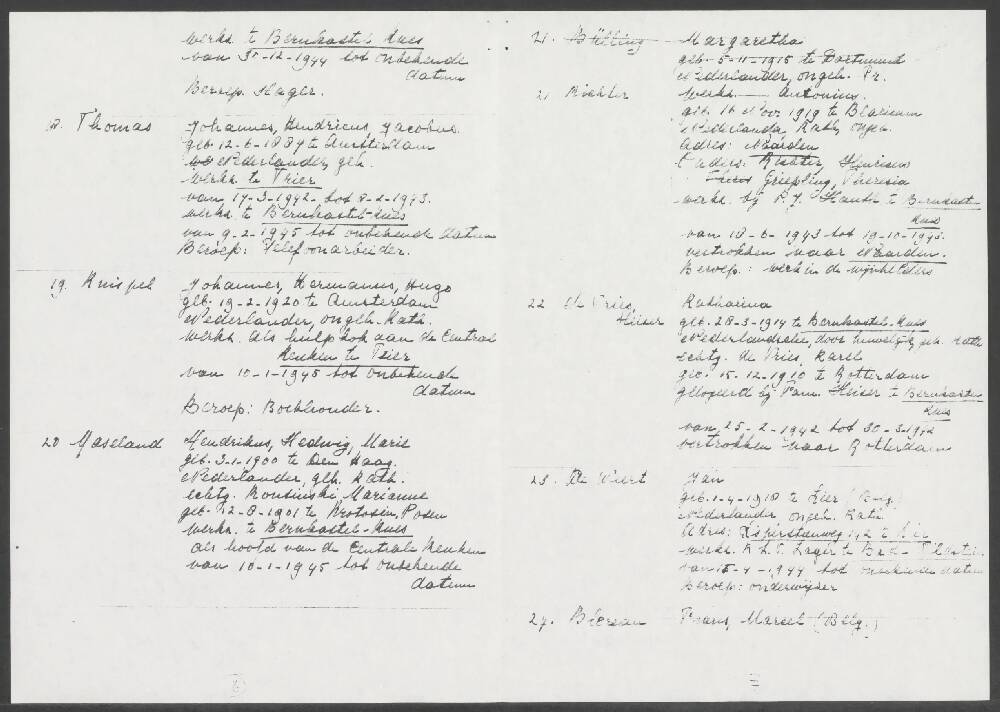 werkz. te Bernkastel-Kues
van 30-12-1944 tot onbekende
datum
Beroep: Slager.
18. Thomas Johannes, Hendricus, Jacobus.
geb. 12-6-1887 te Amsterdam
Nederlander, geh.
werkz. te Trier
van 17-3-1942, tot 8-2-1943.
werkz. te Bernkastel-Kues
van 9-2-1945 tot onbekende datum
Beroep: Telefoonarbeider.
19. Knispel Johannes, Hermannus, Hugo
geb. 19-2-1920 te Amsterdam
Nederlander, ongeh. Kath.
werkz. als hulpkok aan de Central
Keuken te Trier
van 10-1-1945 tot onbekende
datum
Beroep: Boekhouder.
20 Maseland Hendrikus, Hedwig, Marie
geb. 3-1-1900 te Den Haag.
Nederlander, geh. Kath.
echtg. Rousinski Marianne
geb. 12-8-1901 te Krotosin, Posen
werkz. te Bernkastel-Kues
als hoofd van de Centrale Keuken
van 10-1-1945 tot onbekende
datum
21. Bülling Margaretha
geb. 5-11-1915 te Dortmund
Nederlander, ongeh. Pr.
21 Richter Antonius.
geb. 16 Nov 1919 te Blaricum
Nederlander Kath, ongeh.
Adres: Naarden
Ouders: Richter, Henricus
Griepling, Theresia
werkz. bij P.J. te Bernkastel
Kues
van 18-6-1943 tot 19-10-1943.
vertrokken naar Naarden.
Beroep.: werk in de wijnkelders
22 de Vries, Katharina
Heiser geb. 28-3-1914 te Bernkastel-Kues
Nederlandsche, door huwelijk, geh. Kath
echtg. de Vries, Karel
geb. 15-12-1910 te Rotterdam
gelogeerd bij Fam. Heiser te Bernkastel
Kues
van, 25-2-1942 tot 30-3-1942
vertrokken naar Rotterdam
23. De Weert Jan
geb. 1-4-1918 te Lier (Belg.)
Nederlander ongeh. Kath
Adres: te Lier
werkz. Lager te Bad-
van 15-4-1944 tot onbekende datum
Beroep: onderwijzer
24. Frans, Marcel (Belg.)